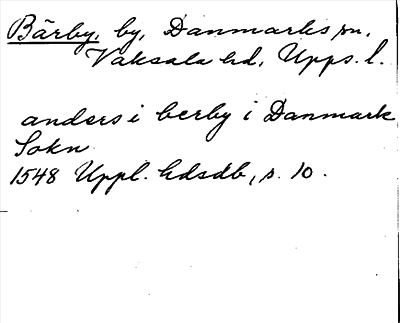 Bärby, by, Danmarks sn,
Vaksala hd, Upps. l.
anders i berby i Danmark
Sokn
1548 Uppl. hdsdb, s. 10.